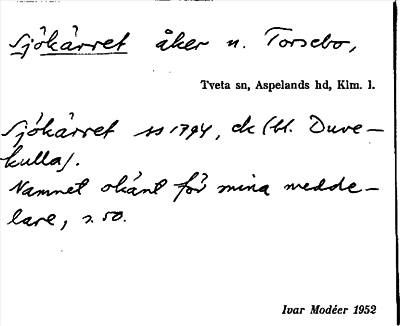 Sjökärret åker n. Torsebo,
Tveta sn, Aspelands hd, Klm. l.
Sjökärret ss 1794, ek (bl. Duve-
kulla).
Namnet okänt för mina medde-
lare, s. 50.
Ivar Modéer 1952